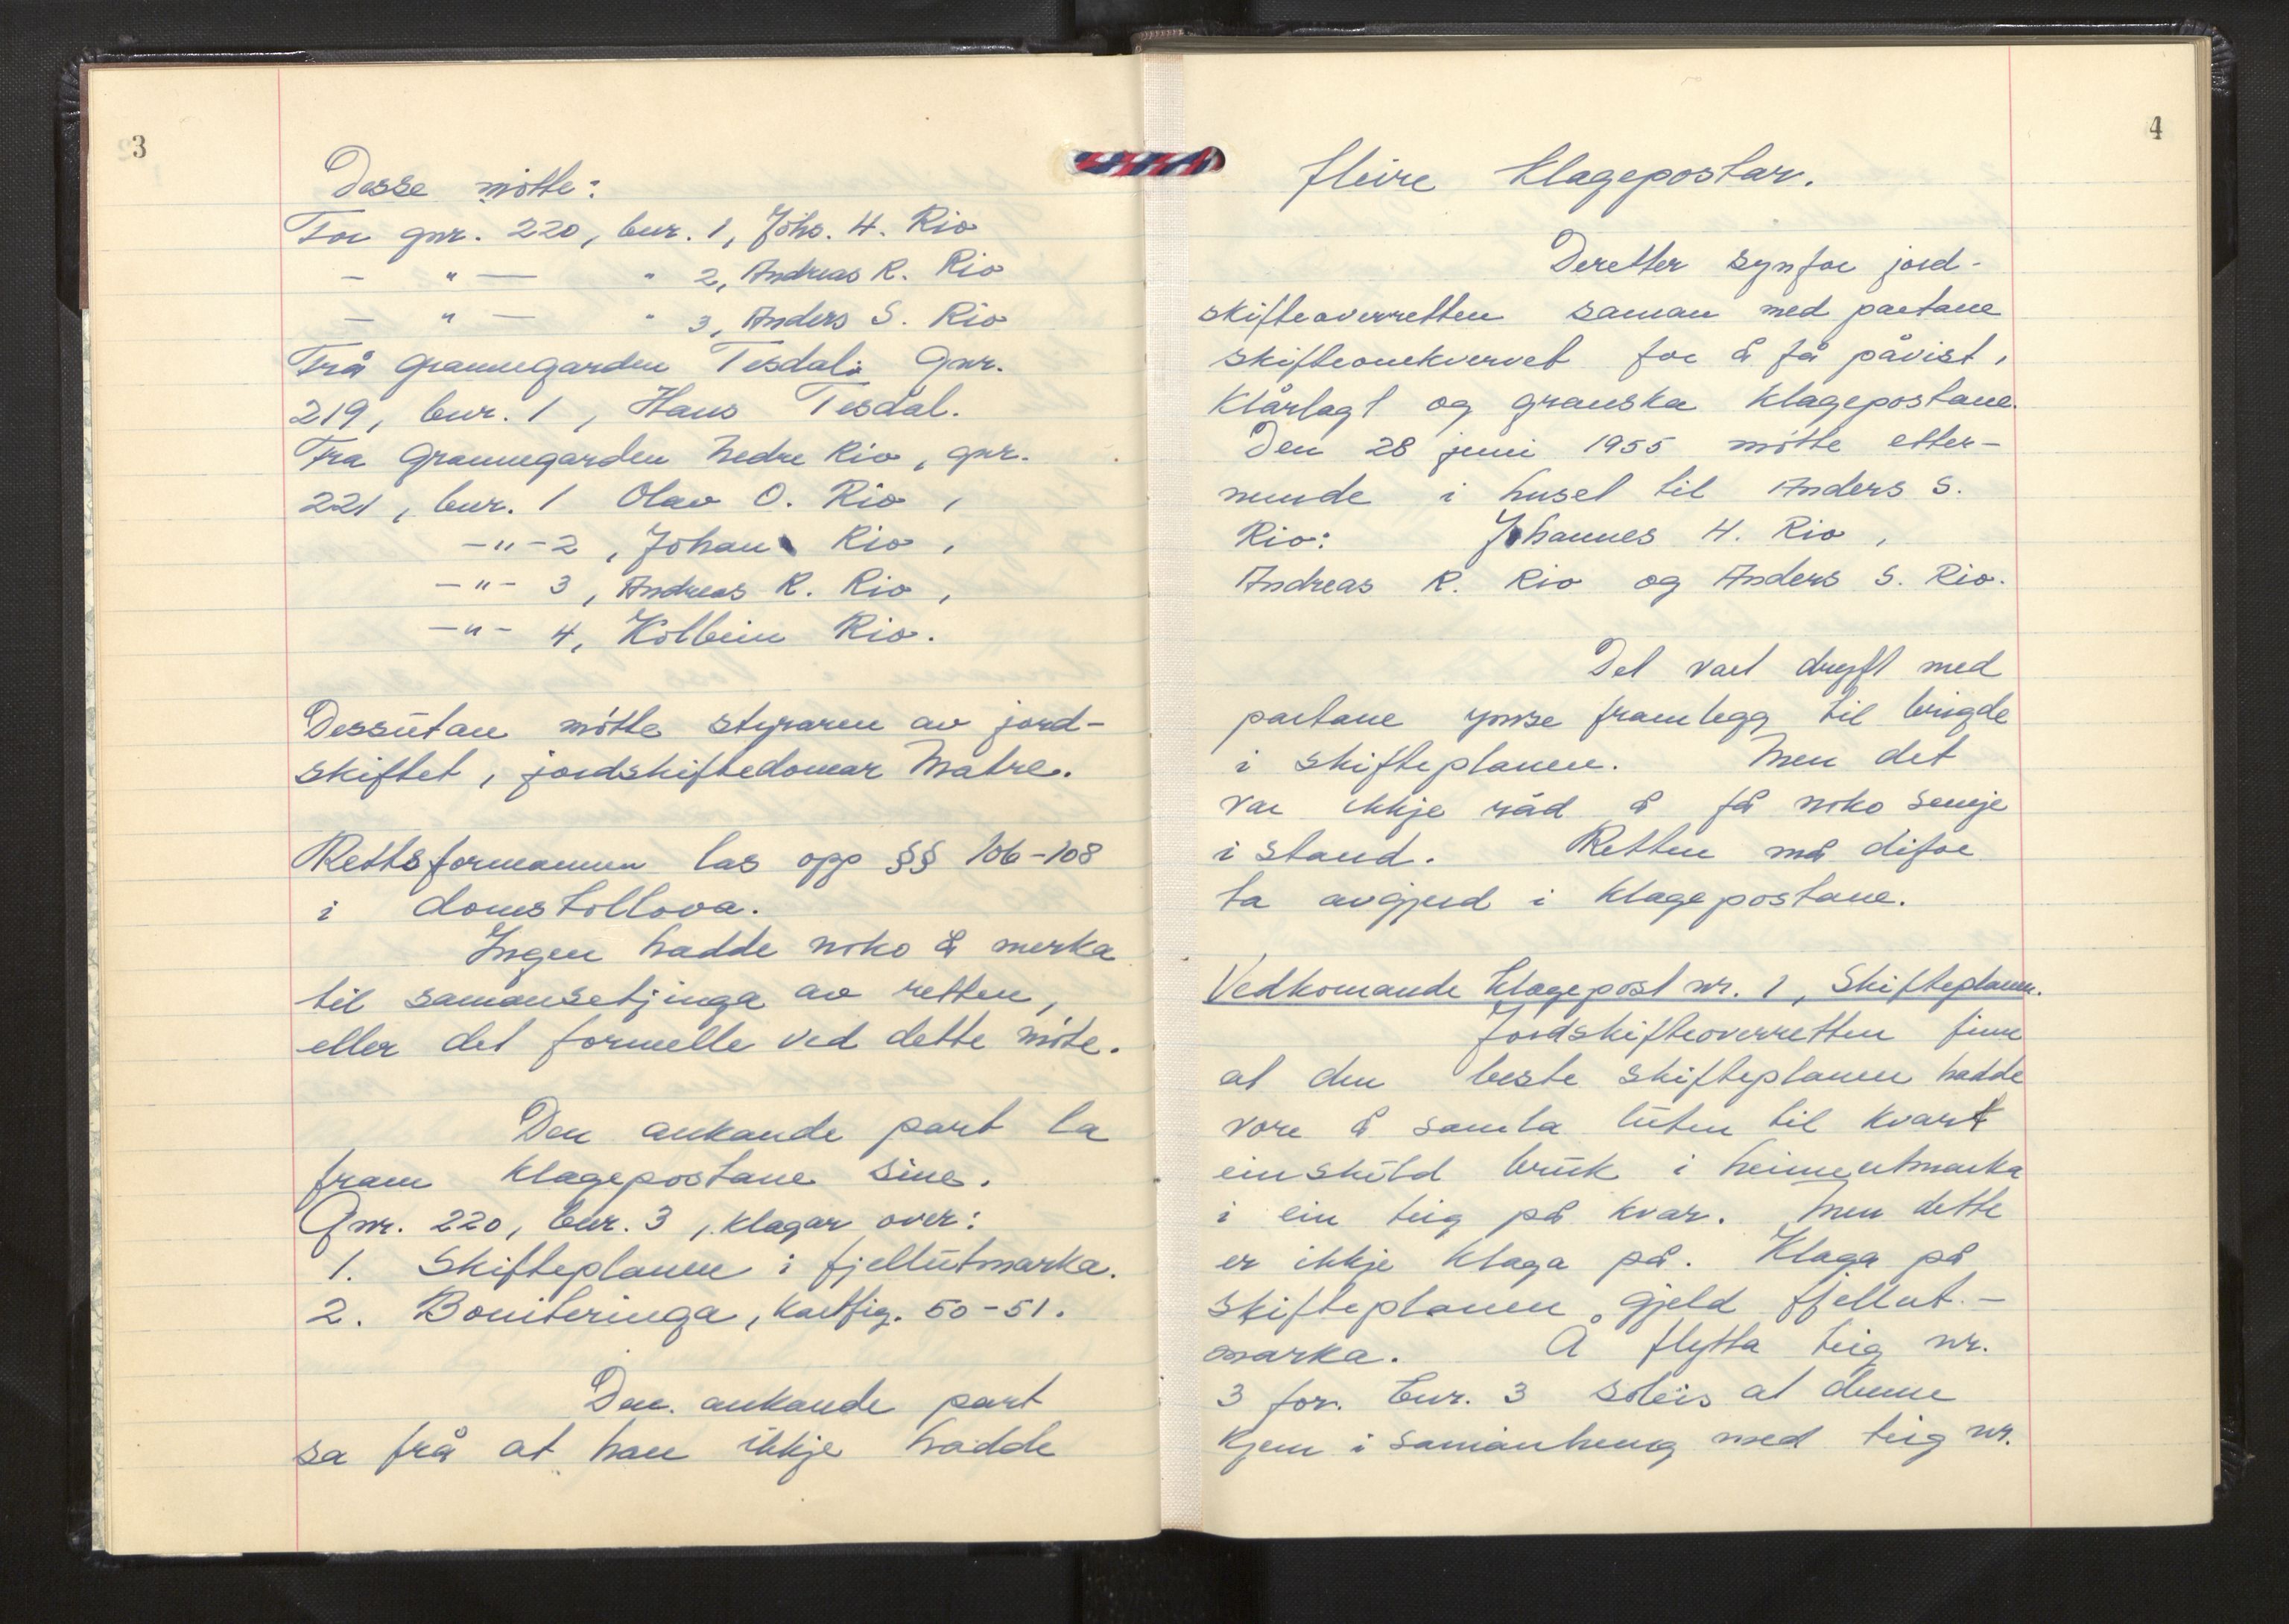 3
Desse møtte:
For gnr. 220, bnr. 1, Johs. H. Rio
— " — " 2, Andreas R. Rio
— " — " 3, Anders S. Rio
Frå grannegarden Tesdal: Gnr.
219, bnr. 1, Hans Tesdal.
Fra grannegarden Nedre Rio, gnr.
221, bnr. 1 Olav O. Rio,
—"— 2, Johan Rio,
—"— 3, Andreas R. Rio,
—"— 4, Kolbein Rio.
Dessutan møtte styraren av jord-
skiftet, jordskiftedomar Matre.
Rettsformannen las opp §§ 106-108
i domstollova.
Ingen hadde noko å merka
til samansetjinga av retten,
eller det formelle ved dette møte.
Den ankande part la
fram klagepostane sine.
Gnr. 220, bnr. 3, klagar over:
1. Skifteplanen i fjellutmarka.
2. Boniteringa, kartfig. 50-51.
Den ankande part
sa frå at han ikkje hadde
4
fleire klagepostar.
Deretter synfor jord-
skifteoverretten saman med partane
skifteomkvervet for å få påvist,
klårlagt og granska klagepostane.
Den 28 juni 1955 møtte etter-
nemnde i huset til Anders S.
Rio: Johannes H. Rio,
Andreas R. Rio og Anders S. Rio.
Det vart drøyft med
partane ymse framlegg til brigde
i skifteplanen. Men det
var ikkje råd å få noko semje
i stand. Retten må difor
ta avgjerd i klagepostane.
Vedkomande klagepost nr. 1, Skifteplanen.
Jordskifteoverretten finn
at den beste skifteplanen hadde
vore å samla luten til kvart
einskild bruk i heimeutmarka
i ein teig på kvar. Men dette
er ikkje klaga på. Klaga på
skifteplanen gjeld fjellut-
marka. Å flytta teig nr.
3 for bnr. 3 soleis at denne
kjem i samanheng med teig nr.